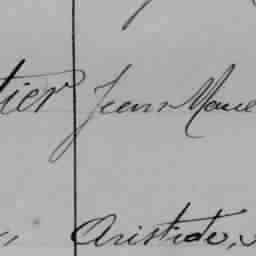 tier Jean Marie
Aristide,